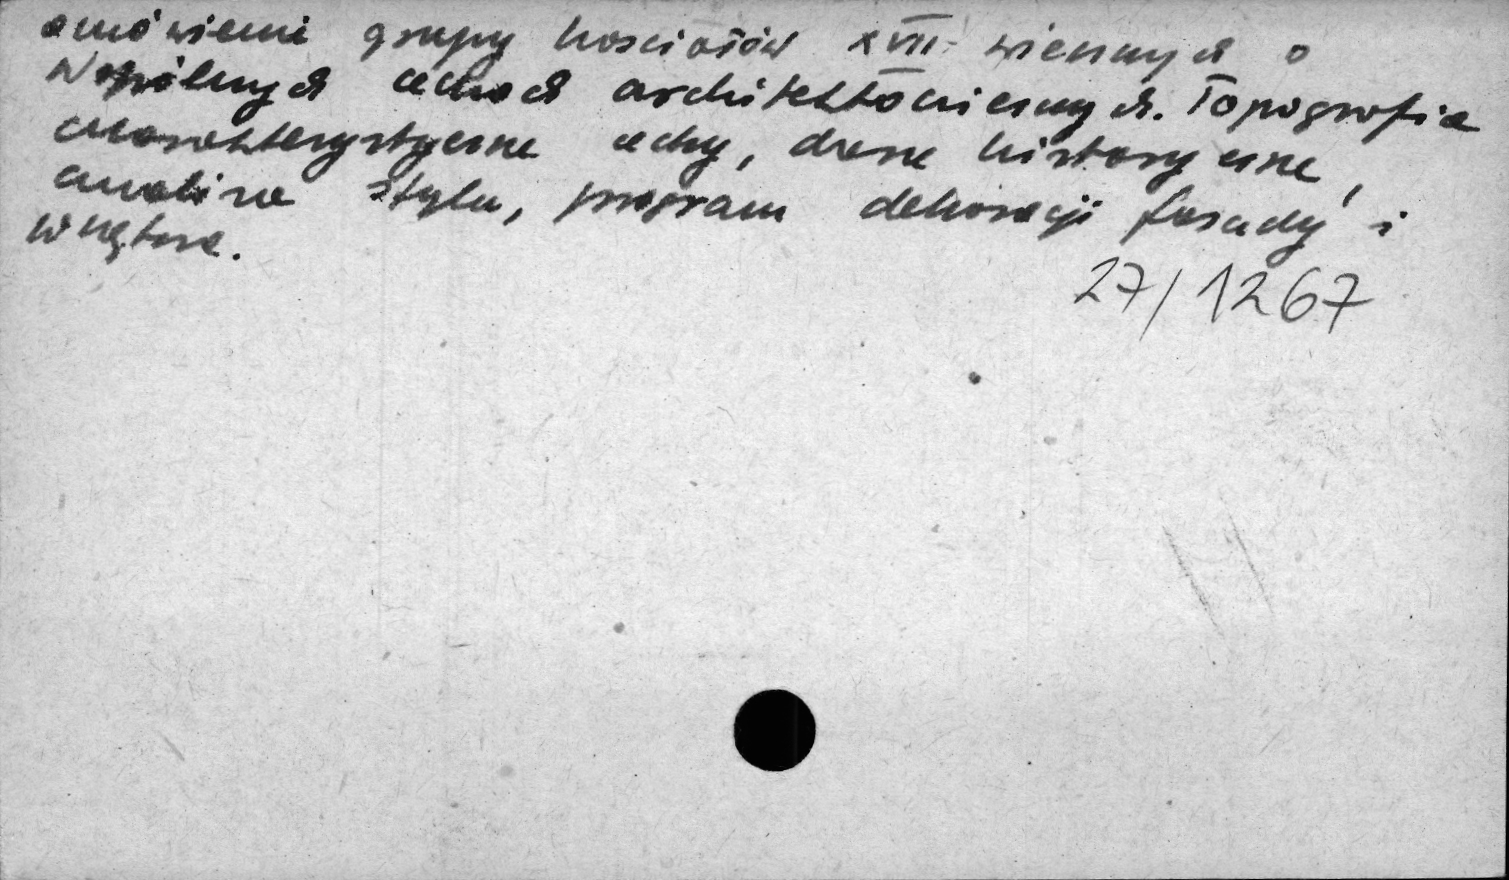 omówienie grupy kościołów XVII-wiecznych o
wspólnych cechach architektonicznych. Topografia
charakterystyczne cechy, dane historyczne,
analiza stylu, program dekoracji fasady i
wnętrza.
27/1267